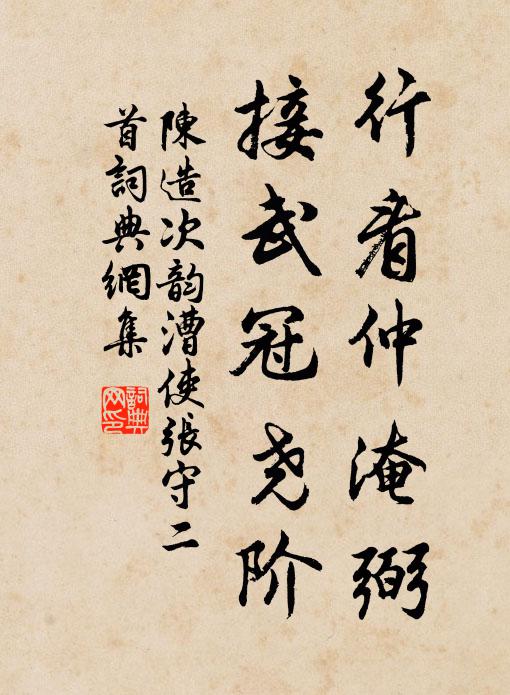 行看仲淹弼
接武冠尧阶
陳造次韵漕使張守二
首詞典網集
詞典网印